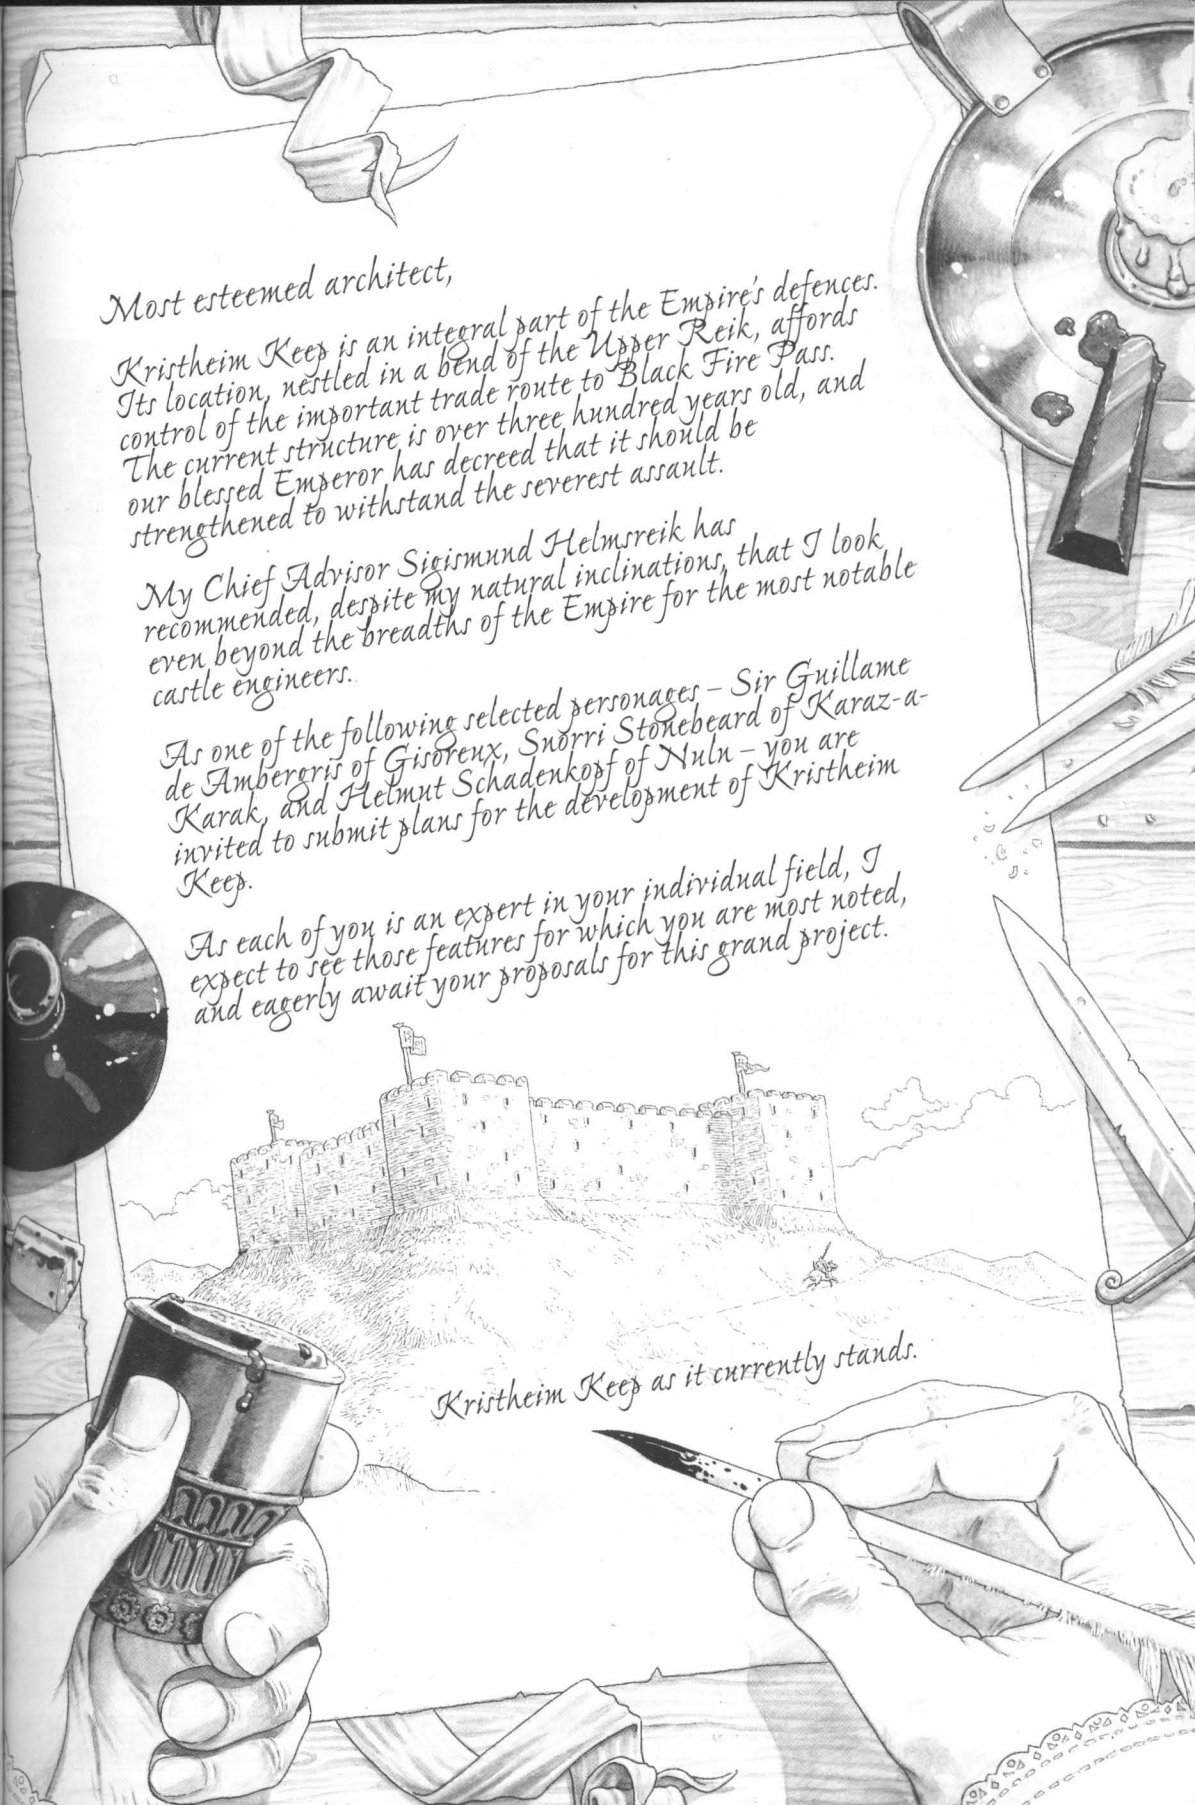 Most esteemed architect,
Kristheim Keep is an integral part of the Empire's defences.
Its location, nestled in a bend of the Upper Reik, affords
control of the important trade route to Black Fire Pass.
The current structure is over three hundred years old, and
our blessed Emperor has decreed that it should be
strengthened to withstand the severest assault.
My Chief Advisor Sigismund Helmsreik has
recommended, despite my natural inclinations, that I look
even beyond the breadths of the Empire for the most notable
castle engineers.
As one of the following selected personages – Sir Guillame
de Ambergris of Gisoreux, Snorri Stonebeard of Karaz-a-
Karak, and Helmut Schadenkopf of Nuln – you are
invited to submit plans for the development of Kristheim
Keep.
As each of you is an expert in your individual field, I
expect to see those features for which you are most noted,
and eagerly await your proposals for this grand project.
Kristheim Keep as it currently stands.